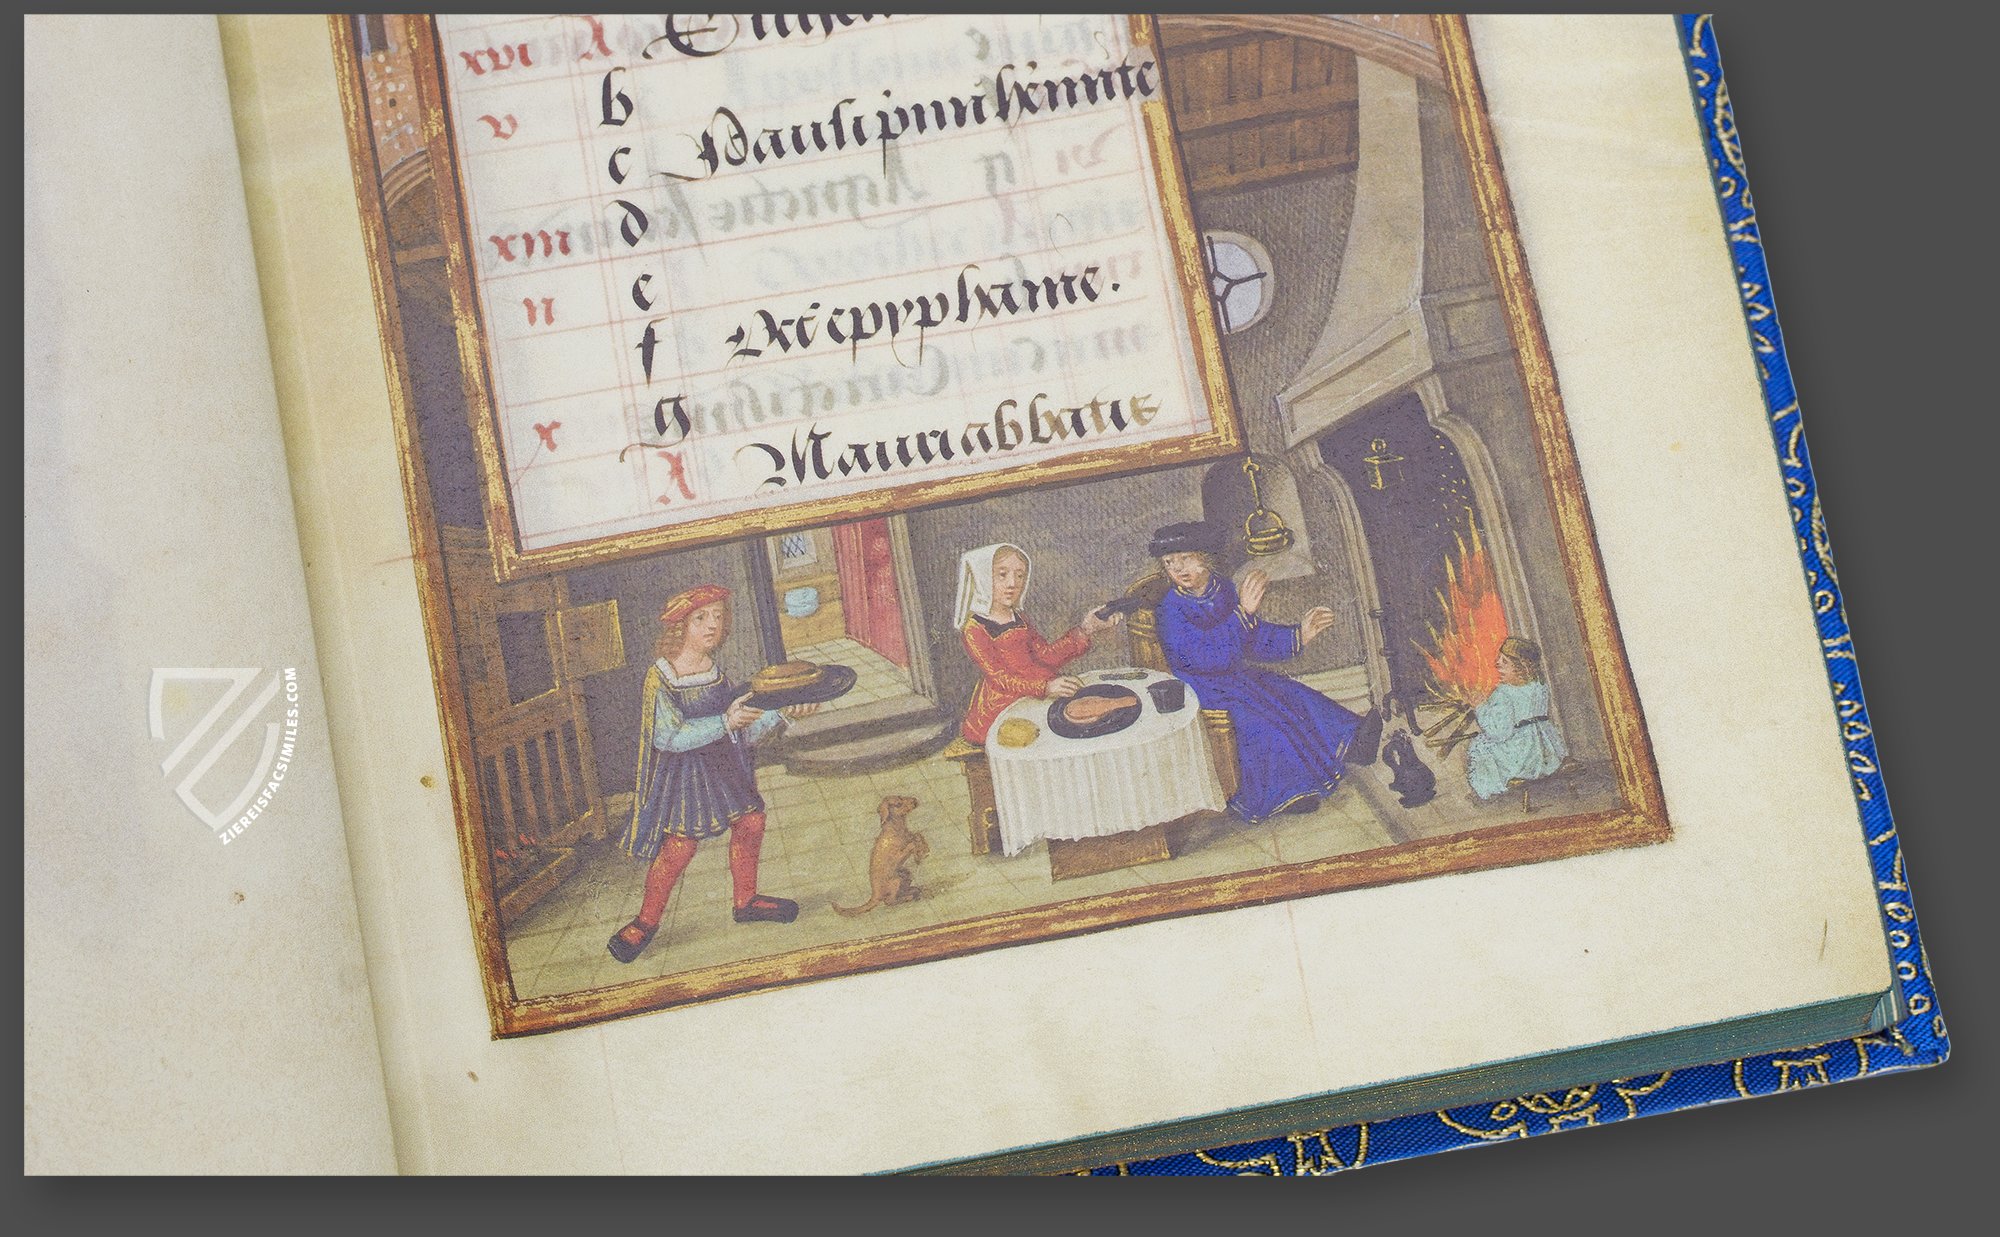 xvi A
v b Pauli primi heremite
c
xiii d
ii e
f Oct epyphanie.
x g
A Mauri abbatis
ZIEREISFACSIMILES.COM